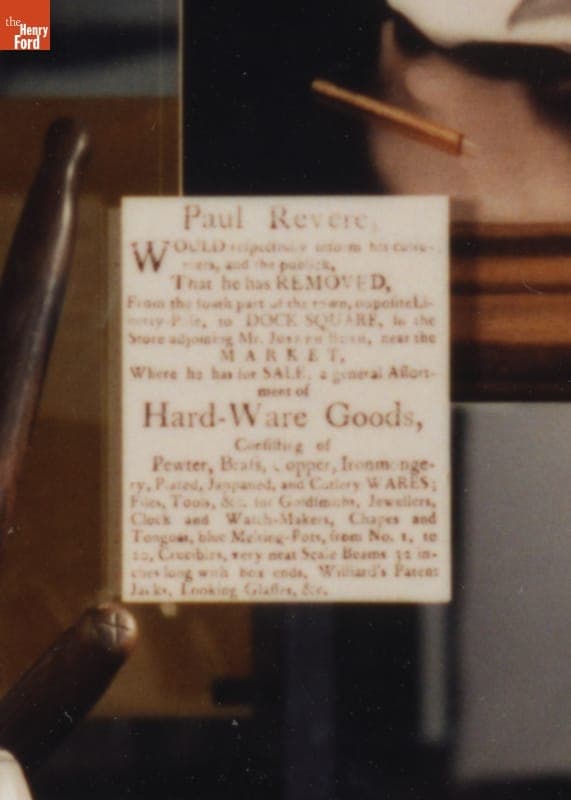 the
Henry
Ford
Paul Revere,
WOULD respectfully inform his custo-
mers, and the publick,
That he has REMOVED,
From the south part of the town, opposite Li-
berty-Pole, to DOCK SQUARE, in the
Store adjoining Mr. Joseph near the
MARKET,
Where he has for SALE, a general Assort-
ment of
Hard-Ware Goods,
Consisting of
Pewter, Brass, Copper, Ironmonge-
ry, Plated, Jappaned, and Cutlery WARES;
Files, Tools, &c. for Goldsmiths, Jewellers,
Clock and Watch-Makers, Chapes and
Tongues, blue Melting-Pots, from No. 1, to
20, Crucibles, very neat Scale Beams 32 in-
ches long with box ends, Williard's Patent
Jacks, Looking Glasses, &c.